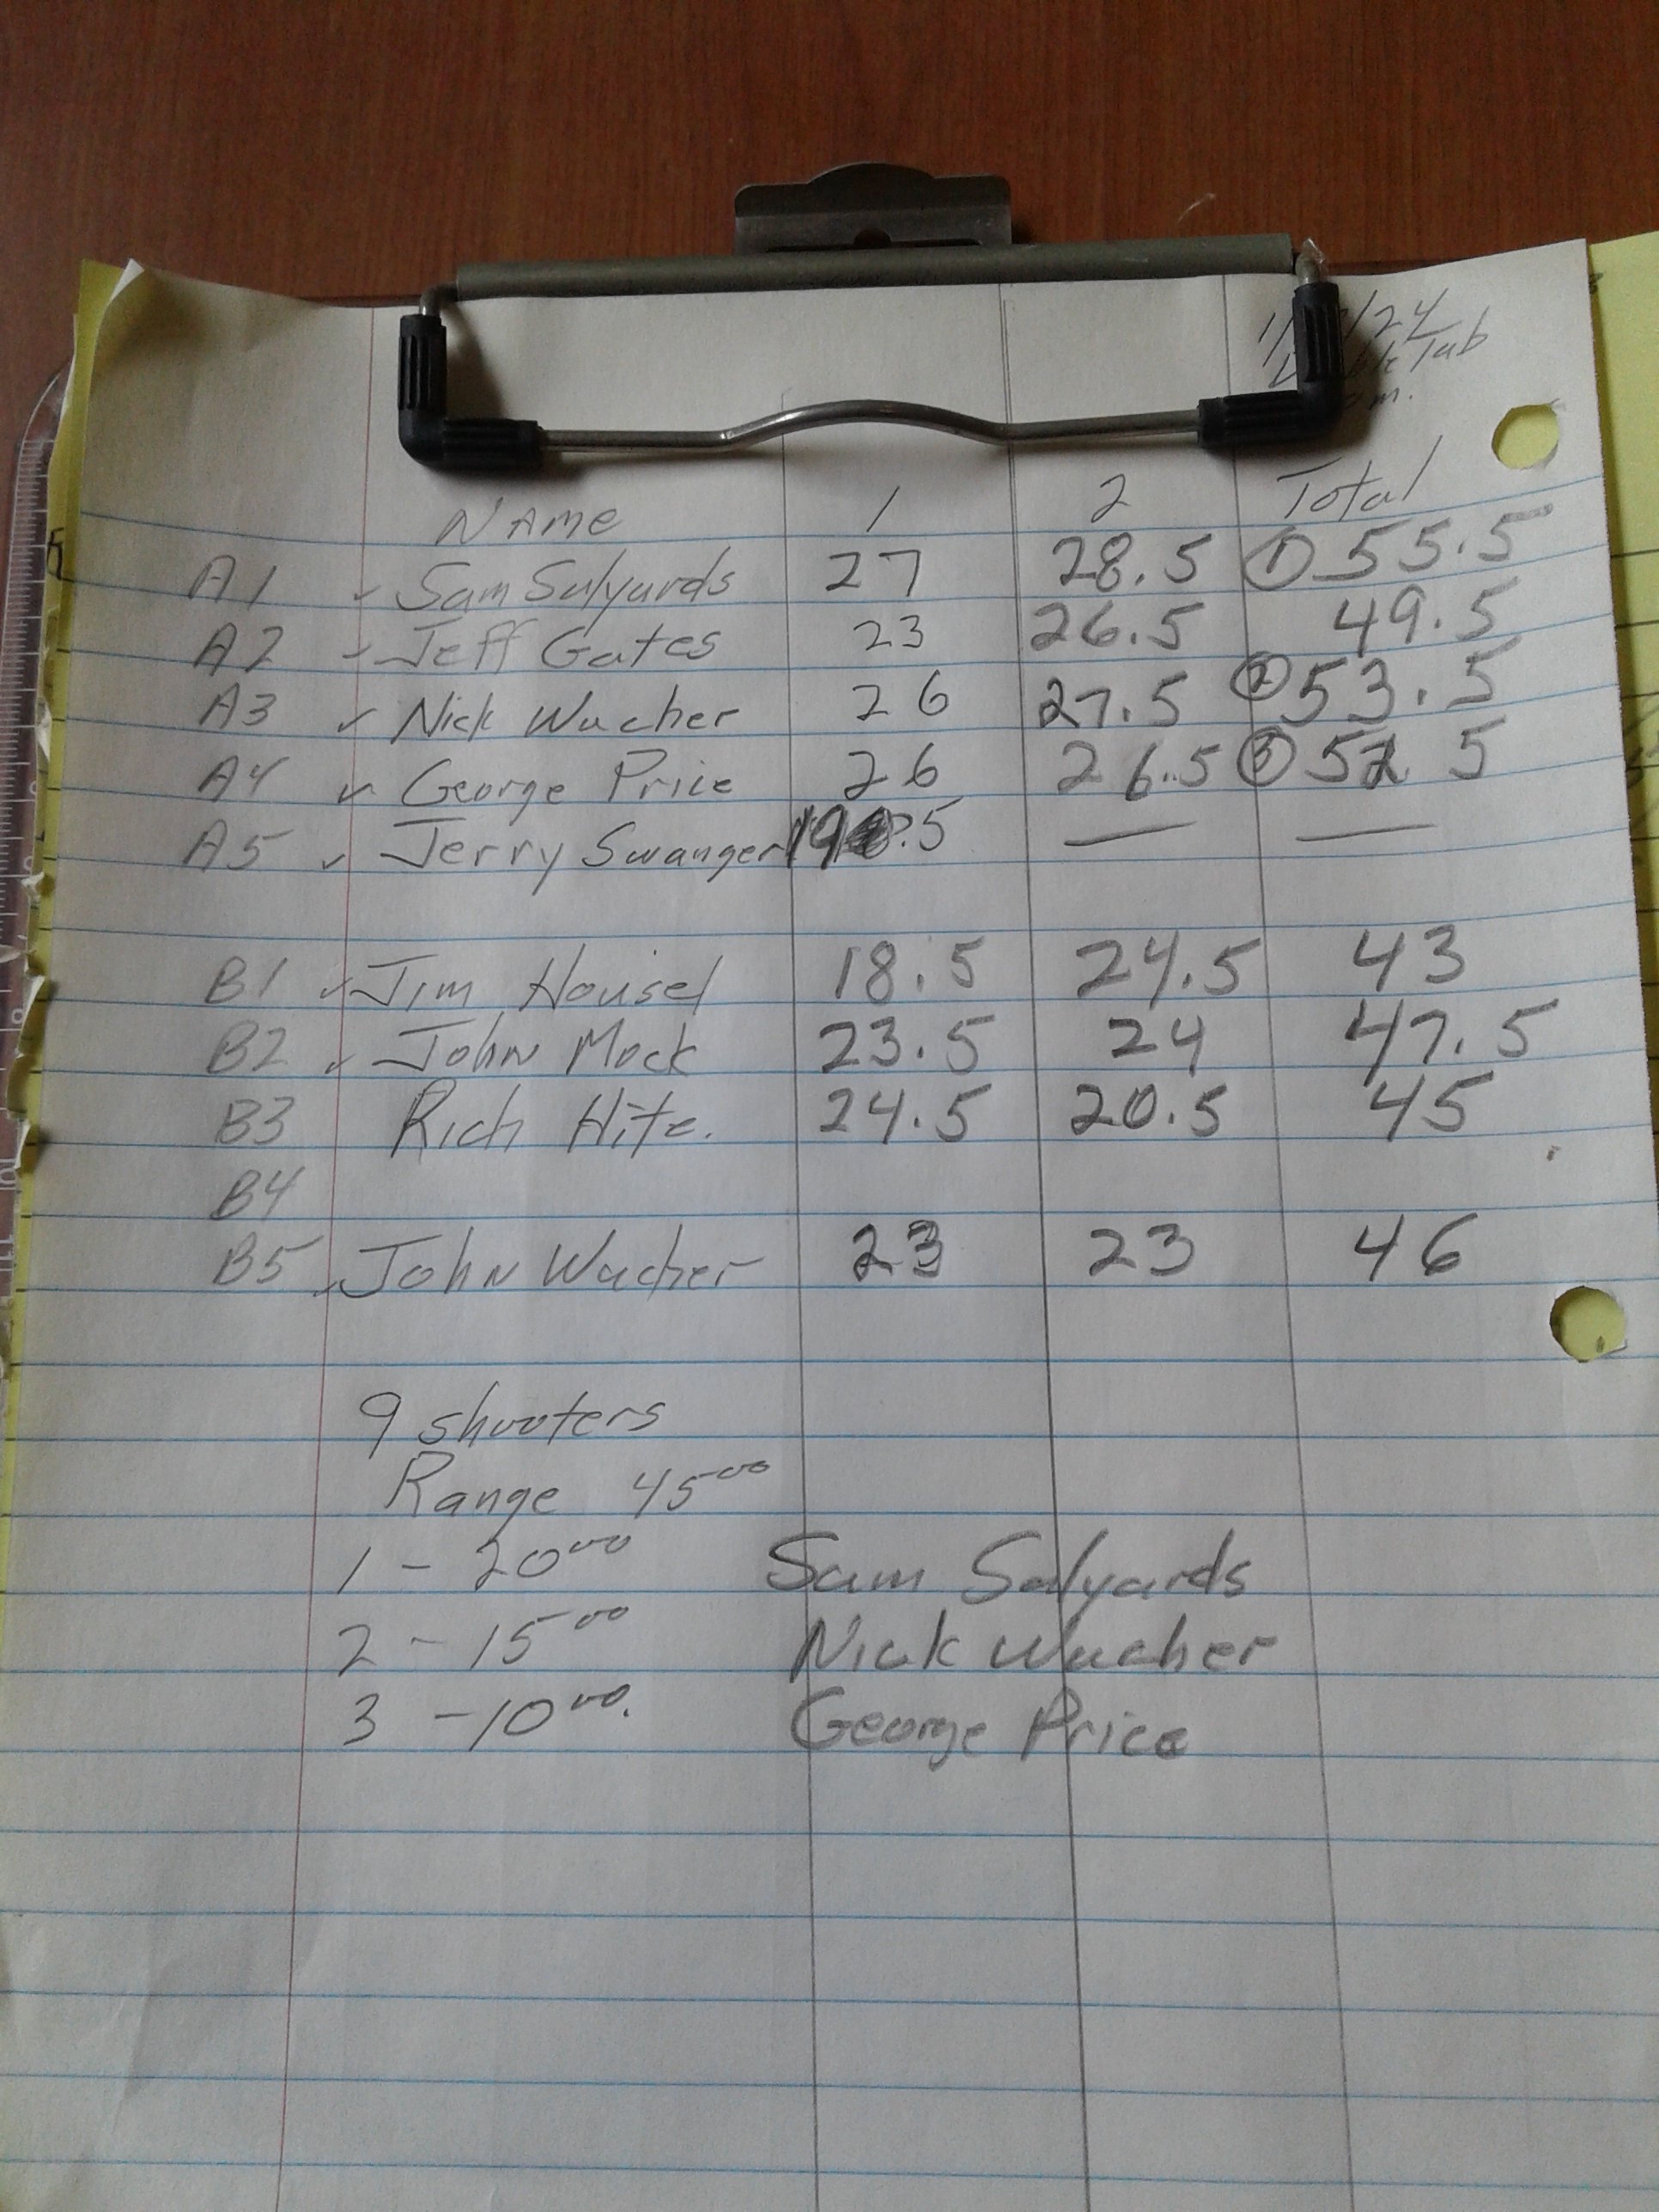 /24
Tab
m.
NAME 1 2 Total
A1 ✓ Sam Salyards 27 28.5 ① 55.5
A2 ✓ Jeff Gates 23 26.5 49.5
A3 ✓ Nick Wacher 26 27.5 ② 53.5
A4 ✓ George Price 26 26.5 ③ 52 5
A5 ✓ Jerry Swanger 19.5 — —
B1 ✓ Jim Housel 18.5 24.5 43
B2 ✓ John Mock 23.5 24 47.5
B3 Rich Hite. 24.5 20.5 45
B4
B5 ✓ John Wacher 23 23 46
9 shooters
Range 4500
1 - 2000 Sam Salyards
2 - 1500 Nick Wacher
3 - 1000. George Price